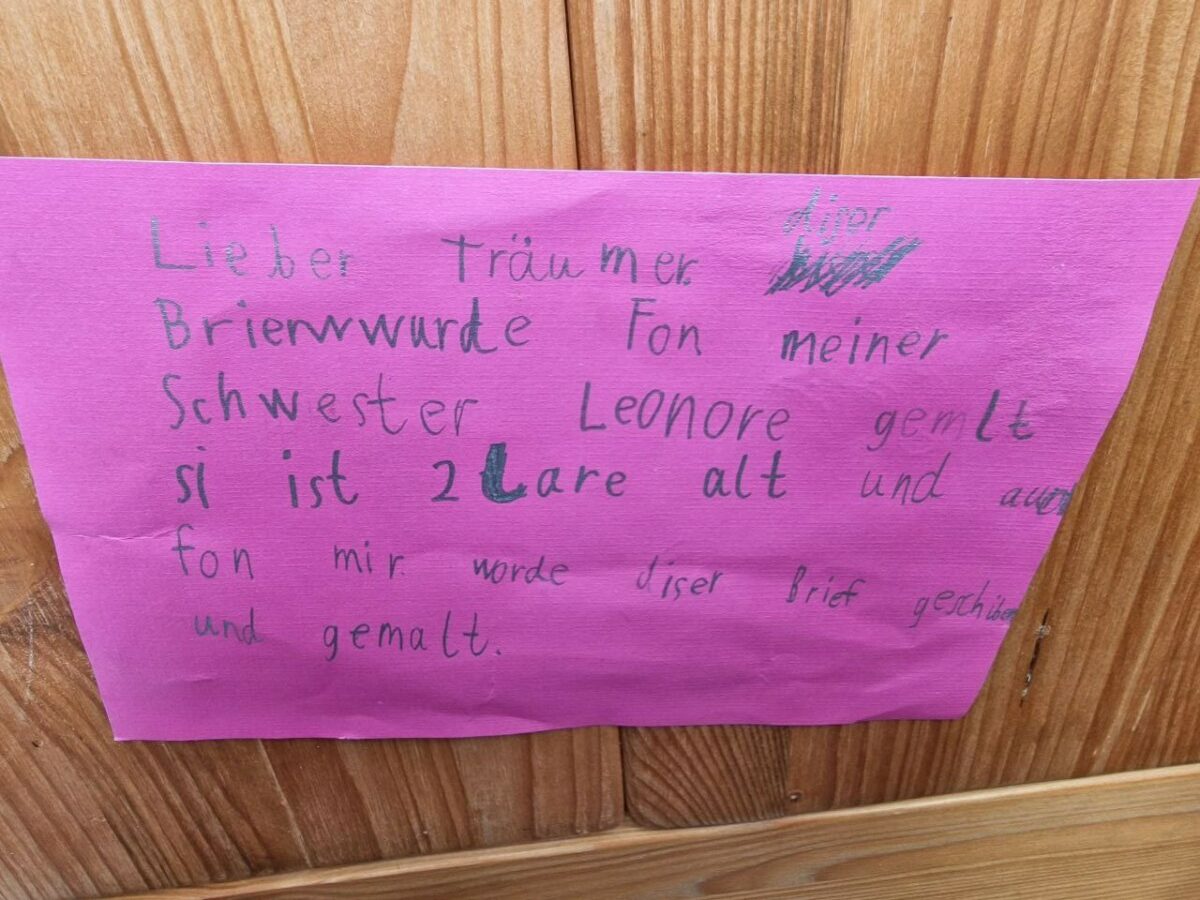 Lieber Träumer. diser
Brierwwurde Fon meiner
Schwester Leonore gemlt
si ist 2 Lare alt und auch
fon mir worde diser Brief geschiben
und gemalt.